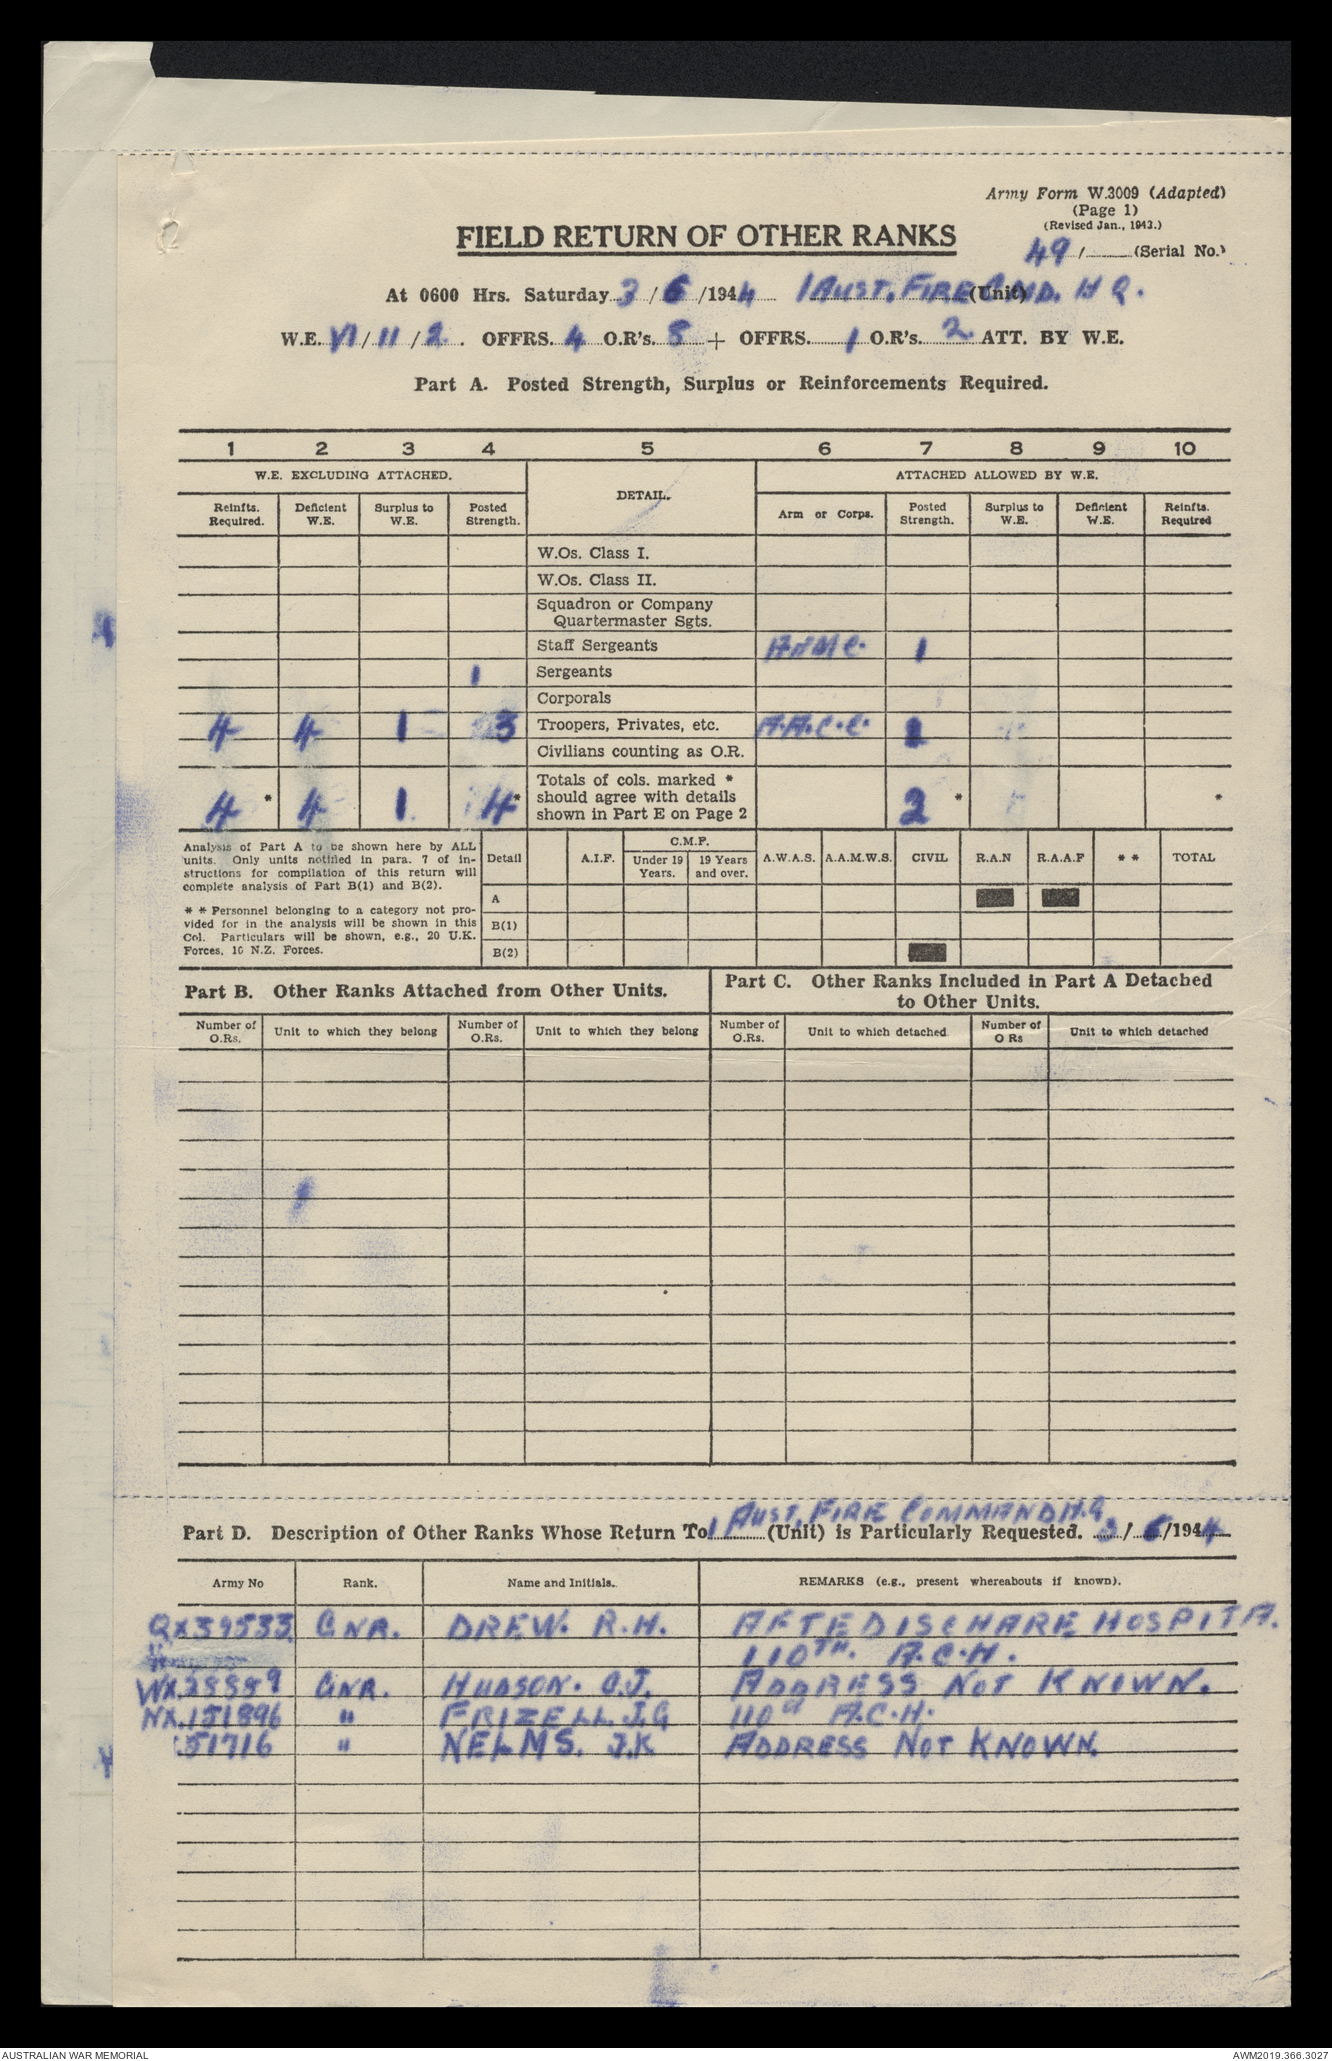 Army Form W.3009 (Adapted)
(Page 1)
(Revised Jan., 1943.)
FIELD RETURN OF OTHER RANKS
49 / (Serial No.)
At 0600 Hrs. Saturday 3 / 6 /1944 1 AUST. FIRE CMD. H Q. (Unit)
W.E. VI / 11 / 2. OFFRS. 4 O.R's. 8 + OFFRS. 1 O.R's. 2 ATT. BY W.E.
Part A. Posted Strength, Surplus or Reinforcements Required.
1 2 3 4 5 6 7 8 9 10
W.E. EXCLUDING ATTACHED. DETAIL. ATTACHED ALLOWED BY W.E.
Reinfts. Required. Deficient W.E. Surplus to W.E. Posted Strength. Arm or Corps. Posted Strength. Surplus to W.E. Deficient W.E. Reinfts. Required
W.Os. Class I.
W.Os. Class II.
Squadron or Company
Quartermaster Sgts.
Staff Sergeants 1
1 Sergeants
Corporals
4 4 1 3 Troopers, Privates, etc. A.A.C.C. 1
Civilians counting as O.R.
Totals of cols. marked *
4 * 4 1 4 * should agree with details 2 * *
shown in Part E on Page 2
Analysis of Part A to be shown here by ALL
units. Only units notified in para. 7 of in-
structions for compilation of this return will
complete analysis of Part B(1) and B(2).
* * Personnel belonging to a category not pro-
vided for in the analysis will be shown in this
Col. Particulars will be shown, e.g., 20 U.K.
Forces, 10 N.Z. Forces.
Detail A.I.F. C.M.F. Under 19 Years. 19 Years and over. A.W.A.S. A.A.M.W.S. CIVIL R.A.N R.A.A.F * * TOTAL
A
B(1)
B(2)
Part B. Other Ranks Attached from Other Units.
Part C. Other Ranks Included in Part A Detached
to Other Units.
Number of O.Rs. Unit to which they belong Number of O.Rs. Unit to which they belong Number of O.Rs. Unit to which detached Number of O Rs Unit to which detached
Part D. Description of Other Ranks Whose Return To 1 AUST. FIRE COMMAND H.Q. (Unit) is Particularly Requested. 3 / 6 /1944
Army No Rank. Name and Initials. REMARKS (e.g., present whereabouts if known).
QX39533 GNR. DREW. R.H. AFTE DISCHARE HOSPITA.
110TH. A.C.H.
WX28889 GNR. HUDSON. C.J. ADDRESS NOT KNOWN.
NX.151896 " FRIZELL. J.G 110 A.C.H.
51716 " NELMS. J.K ADDRESS NOT KNOWN.
AUSTRALIAN WAR MEMORIAL
AWM2019.366.3027